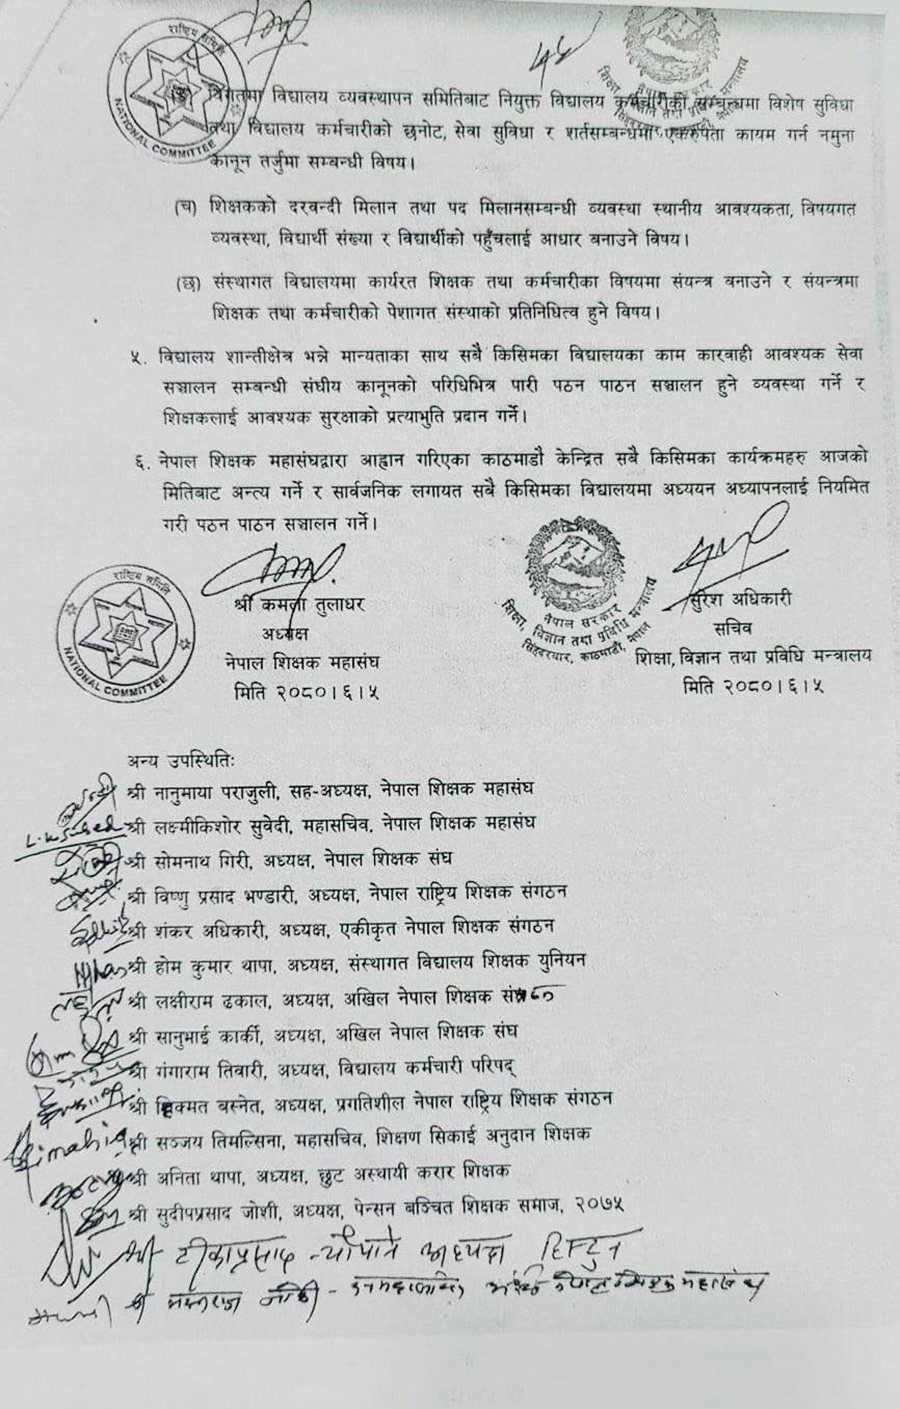 राष्ट्रिय समिति
NATIONAL COMMITTEE
नेपाल सरकार
(ङ) विगतमा विद्यालय व्यवस्थापन समितिबाट नियुक्त विद्यालय कर्मचारीको सम्बन्धमा विशेष सुविधा
तथा विद्यालय कर्मचारीको छनोट, सेवा सुविधा र शर्तसम्बन्धमा एकरुपता कायम गर्न नमुना
कानून तर्जुमा सम्बन्धी विषय।
(च) शिक्षकको दरवन्दी मिलान तथा पद मिलानसम्बन्धी व्यवस्था स्थानीय आवश्यकता, विषयगत
व्यवस्था, विद्यार्थी संख्या र विद्यार्थीको पहुँचलाई आधार बनाउने विषय।
(छ) संस्थागत विद्यालयमा कार्यरत शिक्षक तथा कर्मचारीका विषयमा संयन्त्र बनाउने र संयन्त्रमा
शिक्षक तथा कर्मचारीको पेशागत संस्थाको प्रतिनिधित्व हुने विषय।
५. विद्यालय शान्तीक्षेत्र भन्ने मान्यताका साथ सबै किसिमका विद्यालयका काम कारवाही आवश्यक सेवा
सञ्चालन सम्बन्धी संघीय कानूनको परिधिभित्र पारी पठन पाठन सञ्चालन हुने व्यवस्था गर्ने र
शिक्षकलाई आवश्यक सुरक्षाको प्रत्याभुति प्रदान गर्ने।
६. नेपाल शिक्षक महासंघद्वारा आह्वान गरिएका काठमाडौ केन्द्रित सबै किसिमका कार्यक्रमहरु आजको
मितिबाट अन्त्य गर्ने र सार्वजनिक लगायत सबै किसिमका विद्यालयमा अध्ययन अध्यापनलाई नियमित
गरी पठन पाठन सञ्चालन गर्ने।
राष्ट्रिय समिति
NATIONAL COMMITTEE
श्री कमला तुलाधर
अध्यक्ष
नेपाल शिक्षक महासंघ
मिति २०८०।६।५
नेपाल सरकार
शिक्षा, विज्ञान तथा प्रविधि मन्त्रालय
सिंहदरवार, काठमाडौं, नेपाल
सुरेश अधिकारी
सचिव
शिक्षा, विज्ञान तथा प्रविधि मन्त्रालय
मिति २०८०।६।५
अन्य उपस्थितिः
श्री नानुमाया पराजुली, सह-अध्यक्ष, नेपाल शिक्षक महासंघ
श्री लक्ष्मीकिशोर सुवेदी, महासचिव, नेपाल शिक्षक महासंघ
श्री सोमनाथ गिरी, अध्यक्ष, नेपाल शिक्षक संघ
श्री विष्णु प्रसाद भण्डारी, अध्यक्ष, नेपाल राष्ट्रिय शिक्षक संगठन
श्री शंकर अधिकारी, अध्यक्ष, एकीकृत नेपाल शिक्षक संगठन
श्री होम कुमार थापा, अध्यक्ष, संस्थागत विद्यालय शिक्षक युनियन
श्री लक्षीराम ढकाल, अध्यक्ष, अखिल नेपाल शिक्षक
श्री सानुभाई कार्की, अध्यक्ष, अखिल नेपाल शिक्षक संघ
श्री गंगाराम तिवारी, अध्यक्ष, विद्यालय कर्मचारी परिषद्
श्री हिक्मत बस्नेत, अध्यक्ष, प्रगतिशील नेपाल राष्ट्रिय शिक्षक संगठन
श्री सञ्जय तिमल्सिना, महासचिव, शिक्षण सिकाई अनुदान शिक्षक
श्री अनिता थापा, अध्यक्ष, छुट अस्थायी करार शिक्षक
श्री सुदीपप्रसाद जोशी, अध्यक्ष, पेन्सन बञ्चित शिक्षक समाज, २०७५
श्री टीकाप्रसाद अध्यक्ष
श्री